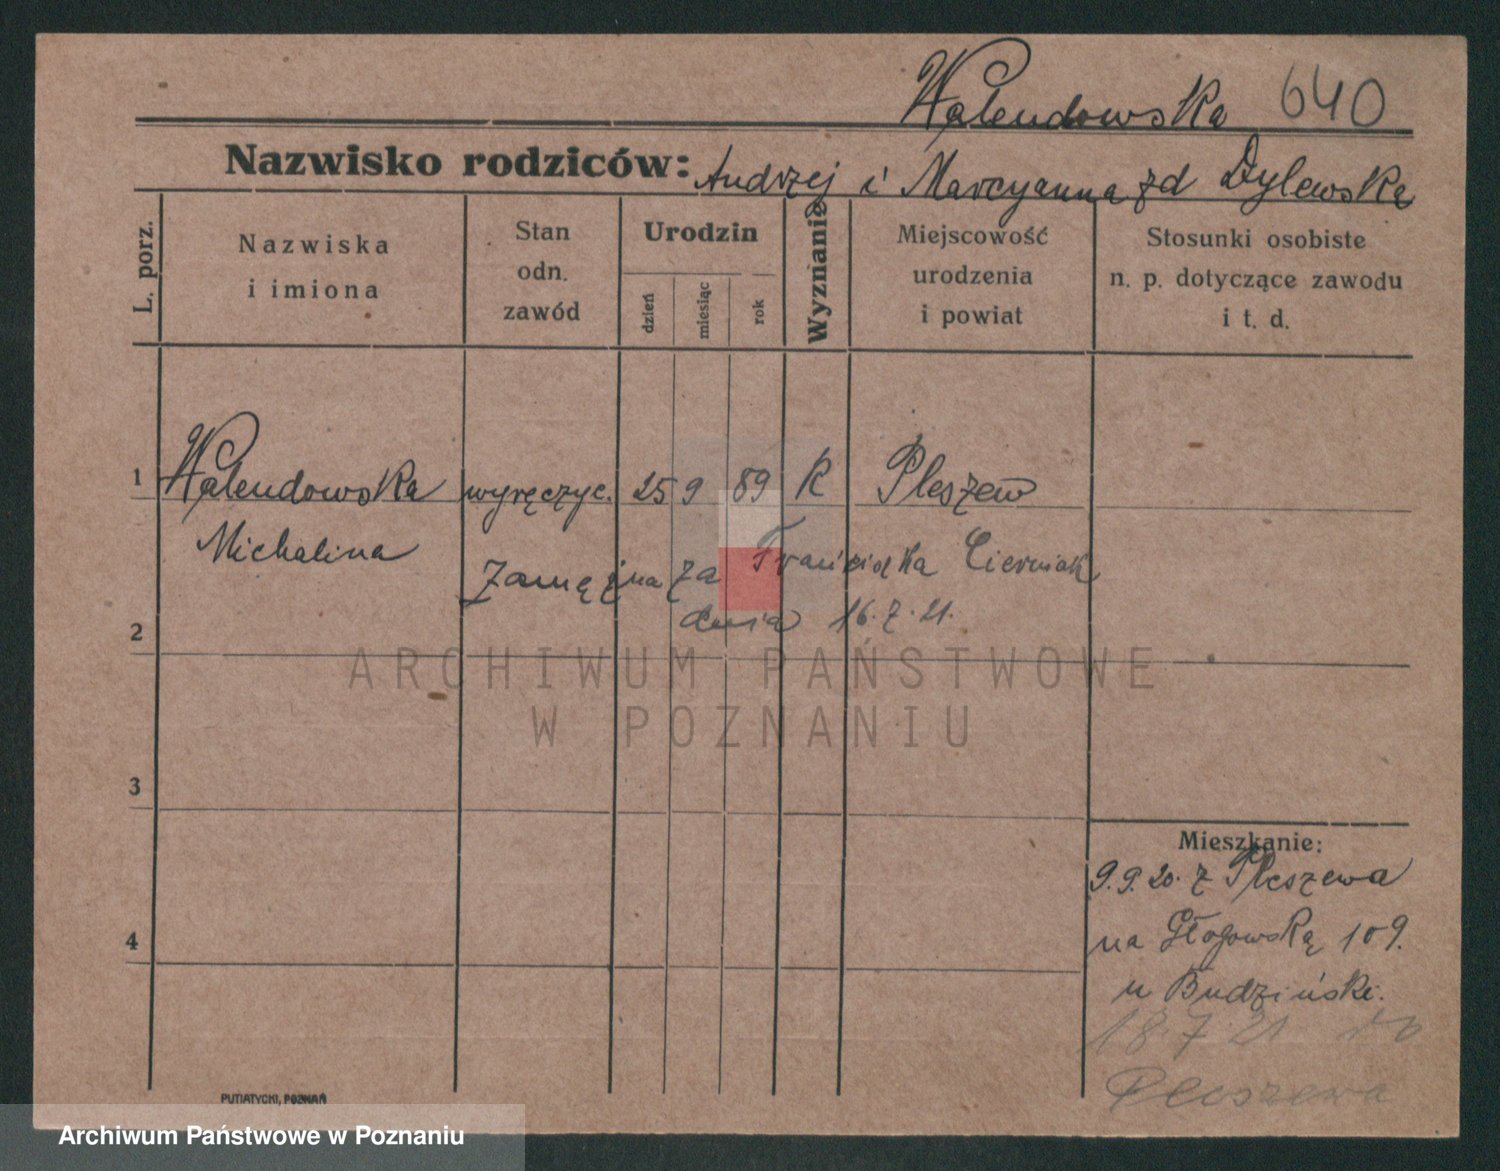 Walendowska 640
Nazwisko rodziców: Andrzej i Marcyanna zd Dylewską
L. porz.
Nazwiska
i imiona
Stan
odn.
zawód
Urodzin
dzień
miesiąc
rok
Wyznanie
Miejscowość
urodzenia
i powiat
Stosunki osobiste
n. p. dotyczące zawodu
i t. d.
1 Walendowska wyręczyc. 25 9 89 K Pleszew
Michalina
Zamężna za Franciszka Cierniak
dnia 16.7.21.
2
ARCHIWUM PAŃSTWOWE
W POZNANIU
3
Mieszkanie:
9.9.20. z Pleszewa
4
na Głogowską 109.
u Budziński.
18.7.21 do
Pleszewa
PUTIATYCKI, POZNAŃ
Archiwum Państwowe w Poznaniu